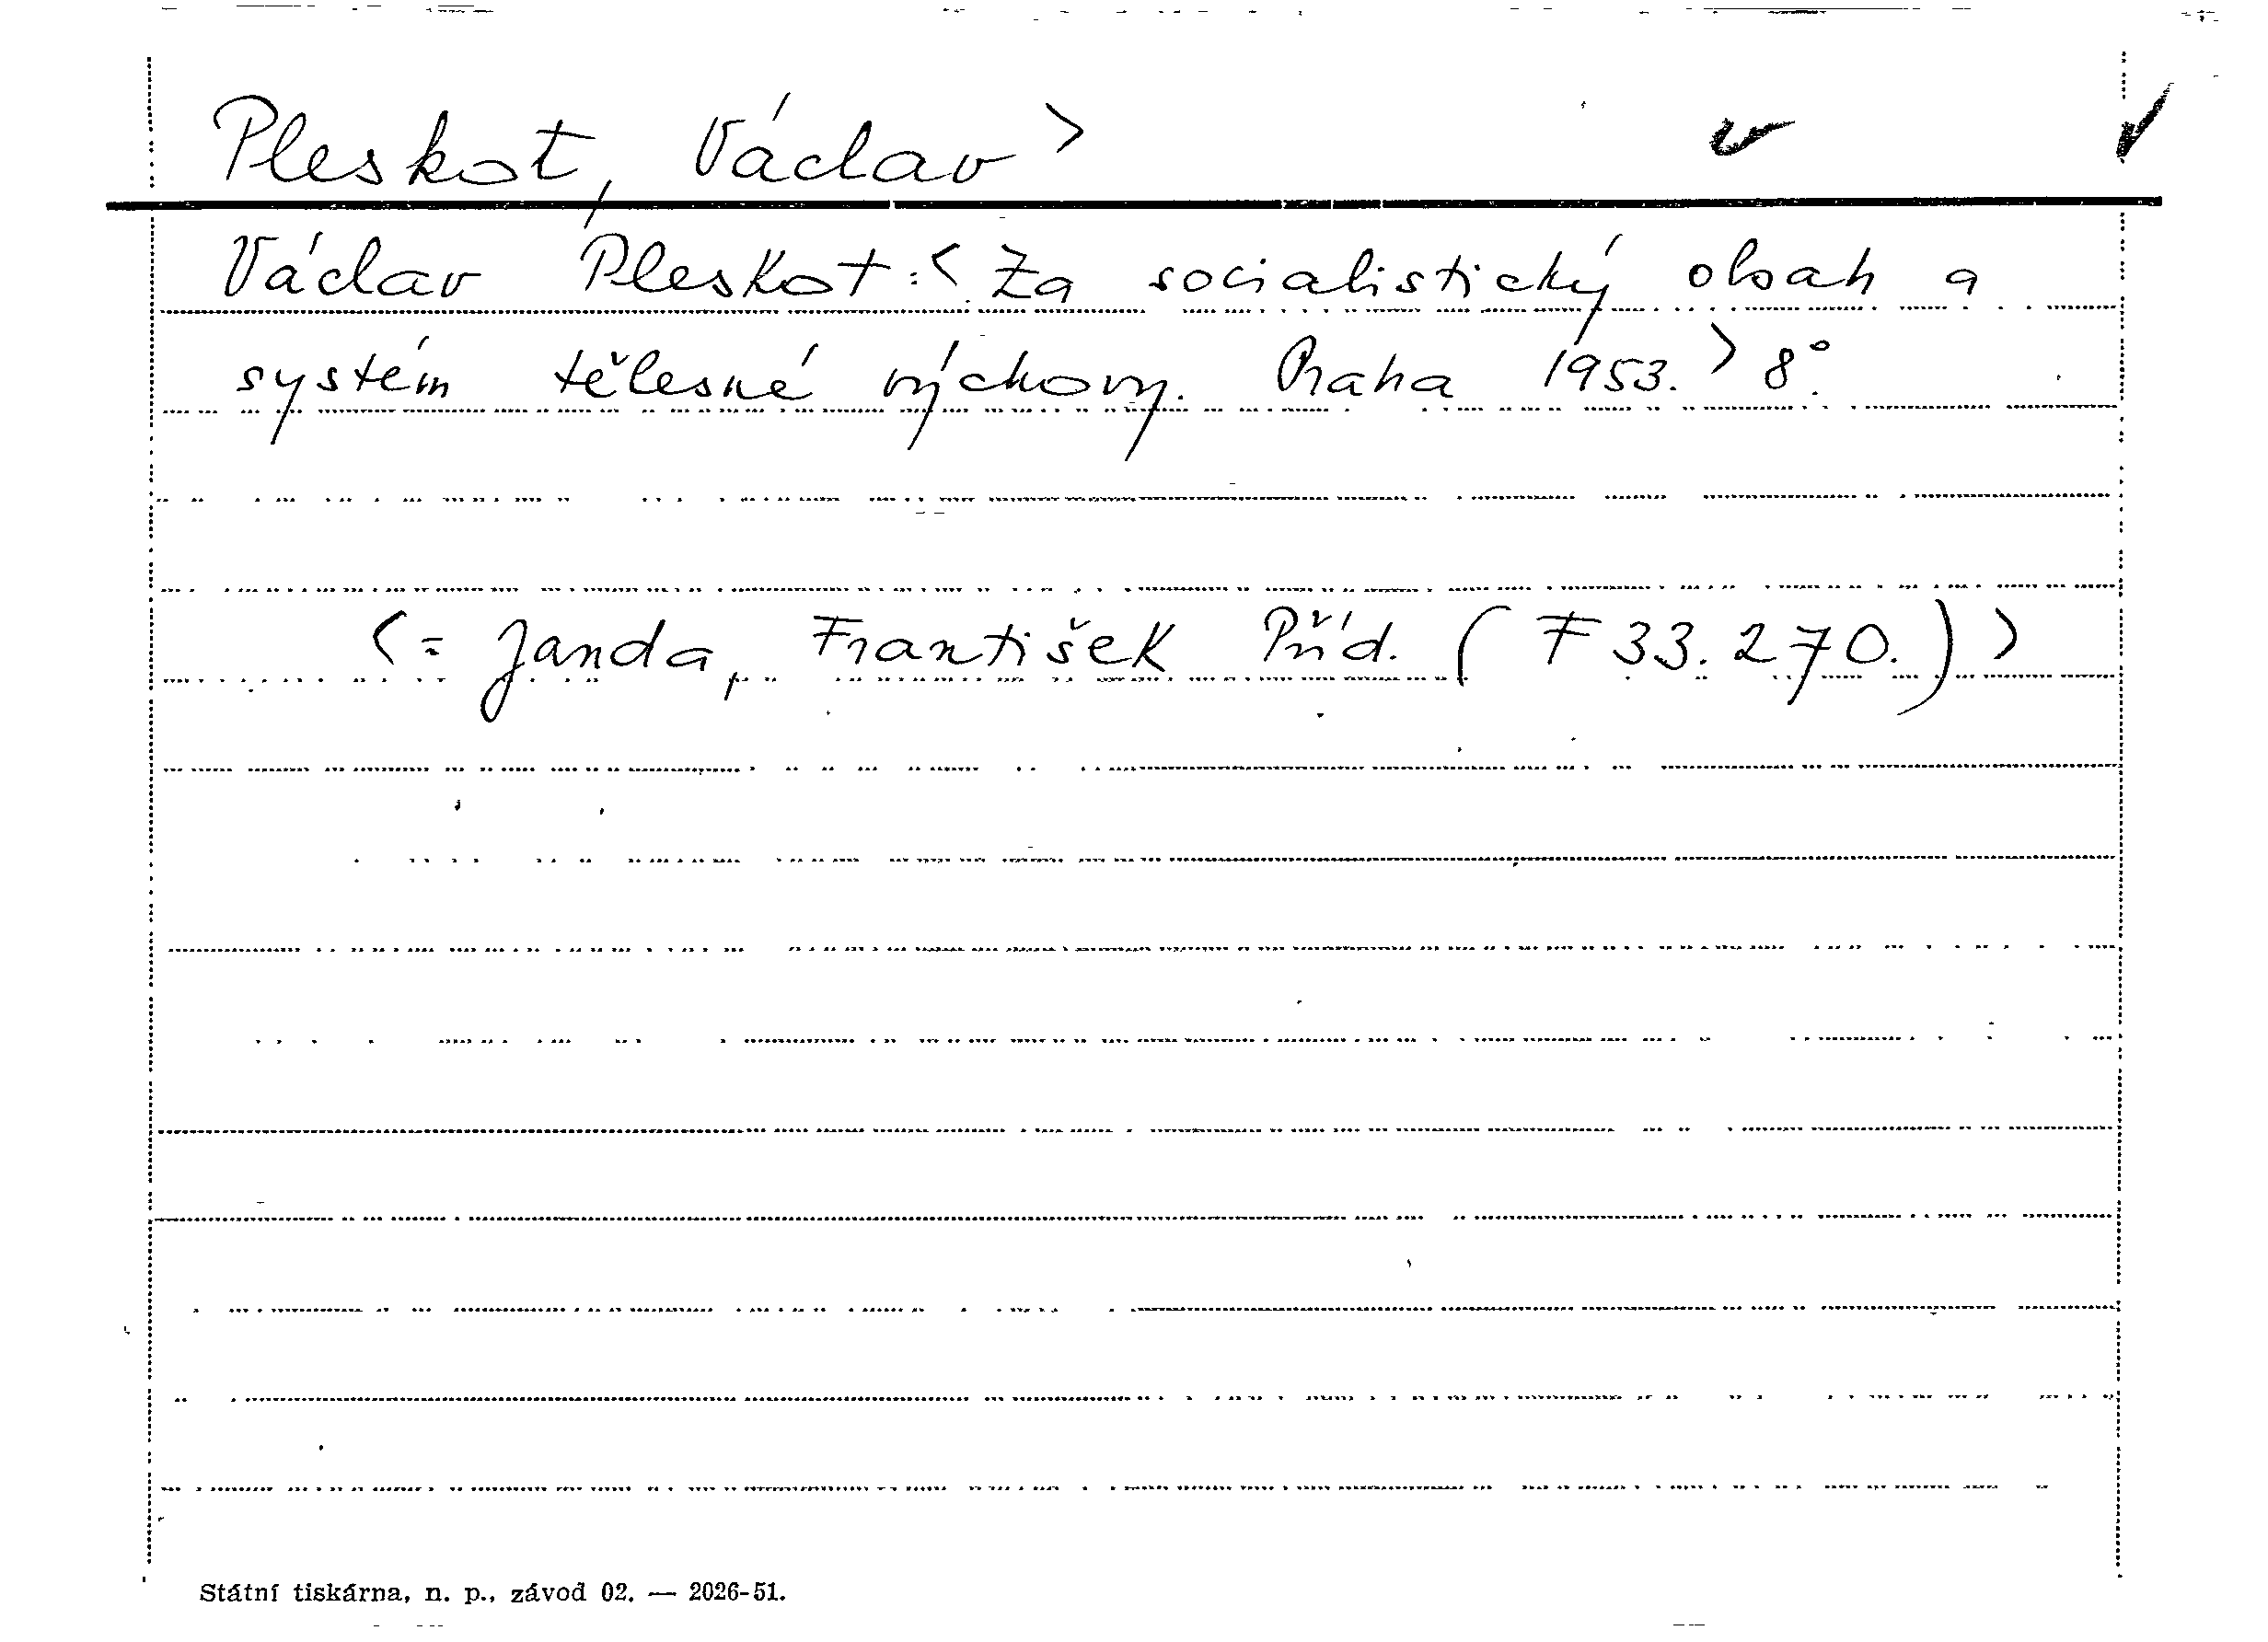 Pleskot, Václav >
Václav Pleskot: < Za socialistický obsah a
systém tělesné výchovy. Praha 1953. > 8°.
<= Janda, František Příd. (F 33.270.) >
Státní tiskárna, n. p., závod 02. — 2026-51.